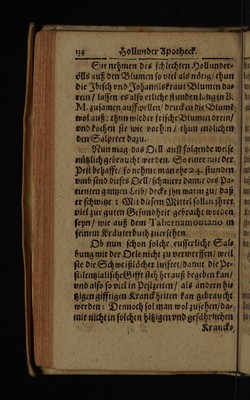 134 Hollunder Apotheck.
Sie nehmen des schlechten Hollunder-
ölls auß den Blumen so viel als nötig/ thun
die Ibisch und Johanniskraut Blumen da-
rein/ lassen es also etliche stunden lang in B.
M. zusamen auffwellen/ drucken die Blumen
wol auß: thun wieder frische Blumen drein/
und kochen sie wie vorhin/ thun endlichen
den Salpeter dazu.
Nun mag das Oell auff folgende weise
nützlich gebraucht werden. So einer mit der
Pest behafft/ so nehme man ehe 24. stunden
umb sind dieses Oell/ schmiere damit des Pa-
tienten gantzen Leib/ decke ihn warm zu/ daß
er schwitze: Mit diesem Mittel sollen ihrer
viel zur guten Gesundheit gebracht worden
seyn/ wie auß dem Tabernamontano in
seinem Kräuterbuch zu ersehen.
Ob nun schon solche eusserliche Sal-
bung mit der Oele nicht zu verwerffen/ weil
sie die Schweißlöcher lüfftet/ damit die Pe-
stilentzialische Gifft sich herauß begeben kan/
und also so viel in Pestzeiten/ als andern hi-
tzigen gifftigen Kranckheiten kan gebraucht
werden: Dennoch sol man wol zusehen/ da-
mit nicht in solchen hitzigen und gefährlichen
Kranck-